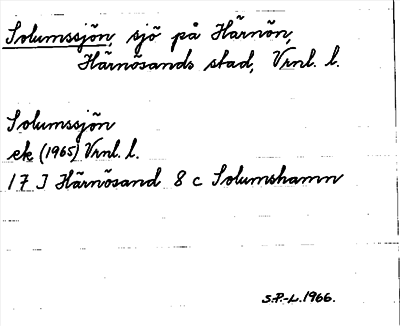 Solumssjön, sjö på Härnön,
Härnösands stad, Vrnl. l.
Solumssjön
ek (1965) Vrnl. l.
17 J Härnösand 8 c Solumshamn
S.P.-L. 1966.